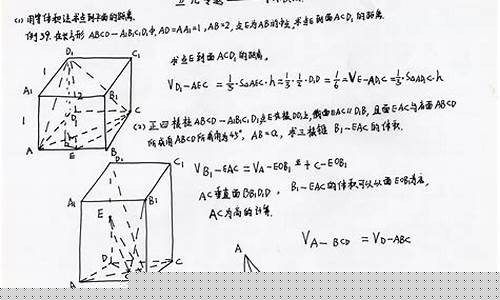 (1) 用等体积法求点到平面的距离.
例39.在长方形 ABCD-A₁B₁C₁D₁中, AD=AA₁=1, AB=2, 点E为AB的中点, 求点E到面ACD₁的距离.
求点E到面ACD₁的距离.
V D₁-AEC = 1/3·S△AEC·h = 1/3·1/2·D₁D = 1/6 = V E-AD₁C = 1/3·S△AD₁C·h
(2) 正四棱柱ABCD-A₁B₁C₁D₁, 点E在棱DD₁上, 截面EAC∥D₁B, 且面EAC与底面ABCD
所成角为45°, AB=a, 求三棱锥 B₁-EAC 的体积.
V B₁-EAC = V A-EOB₁ + C-EOB₁
AC垂直面BB₁D₁D, B₁-EAC的体积可以以面EOB₁为底,
AC为高的计算.
V A-BCD = V D-ABC
D₁ C₁
A₁ B₁
1 1 2
D C
A E B
D₁ C₁
A₁ B₁
E
D C
A
A